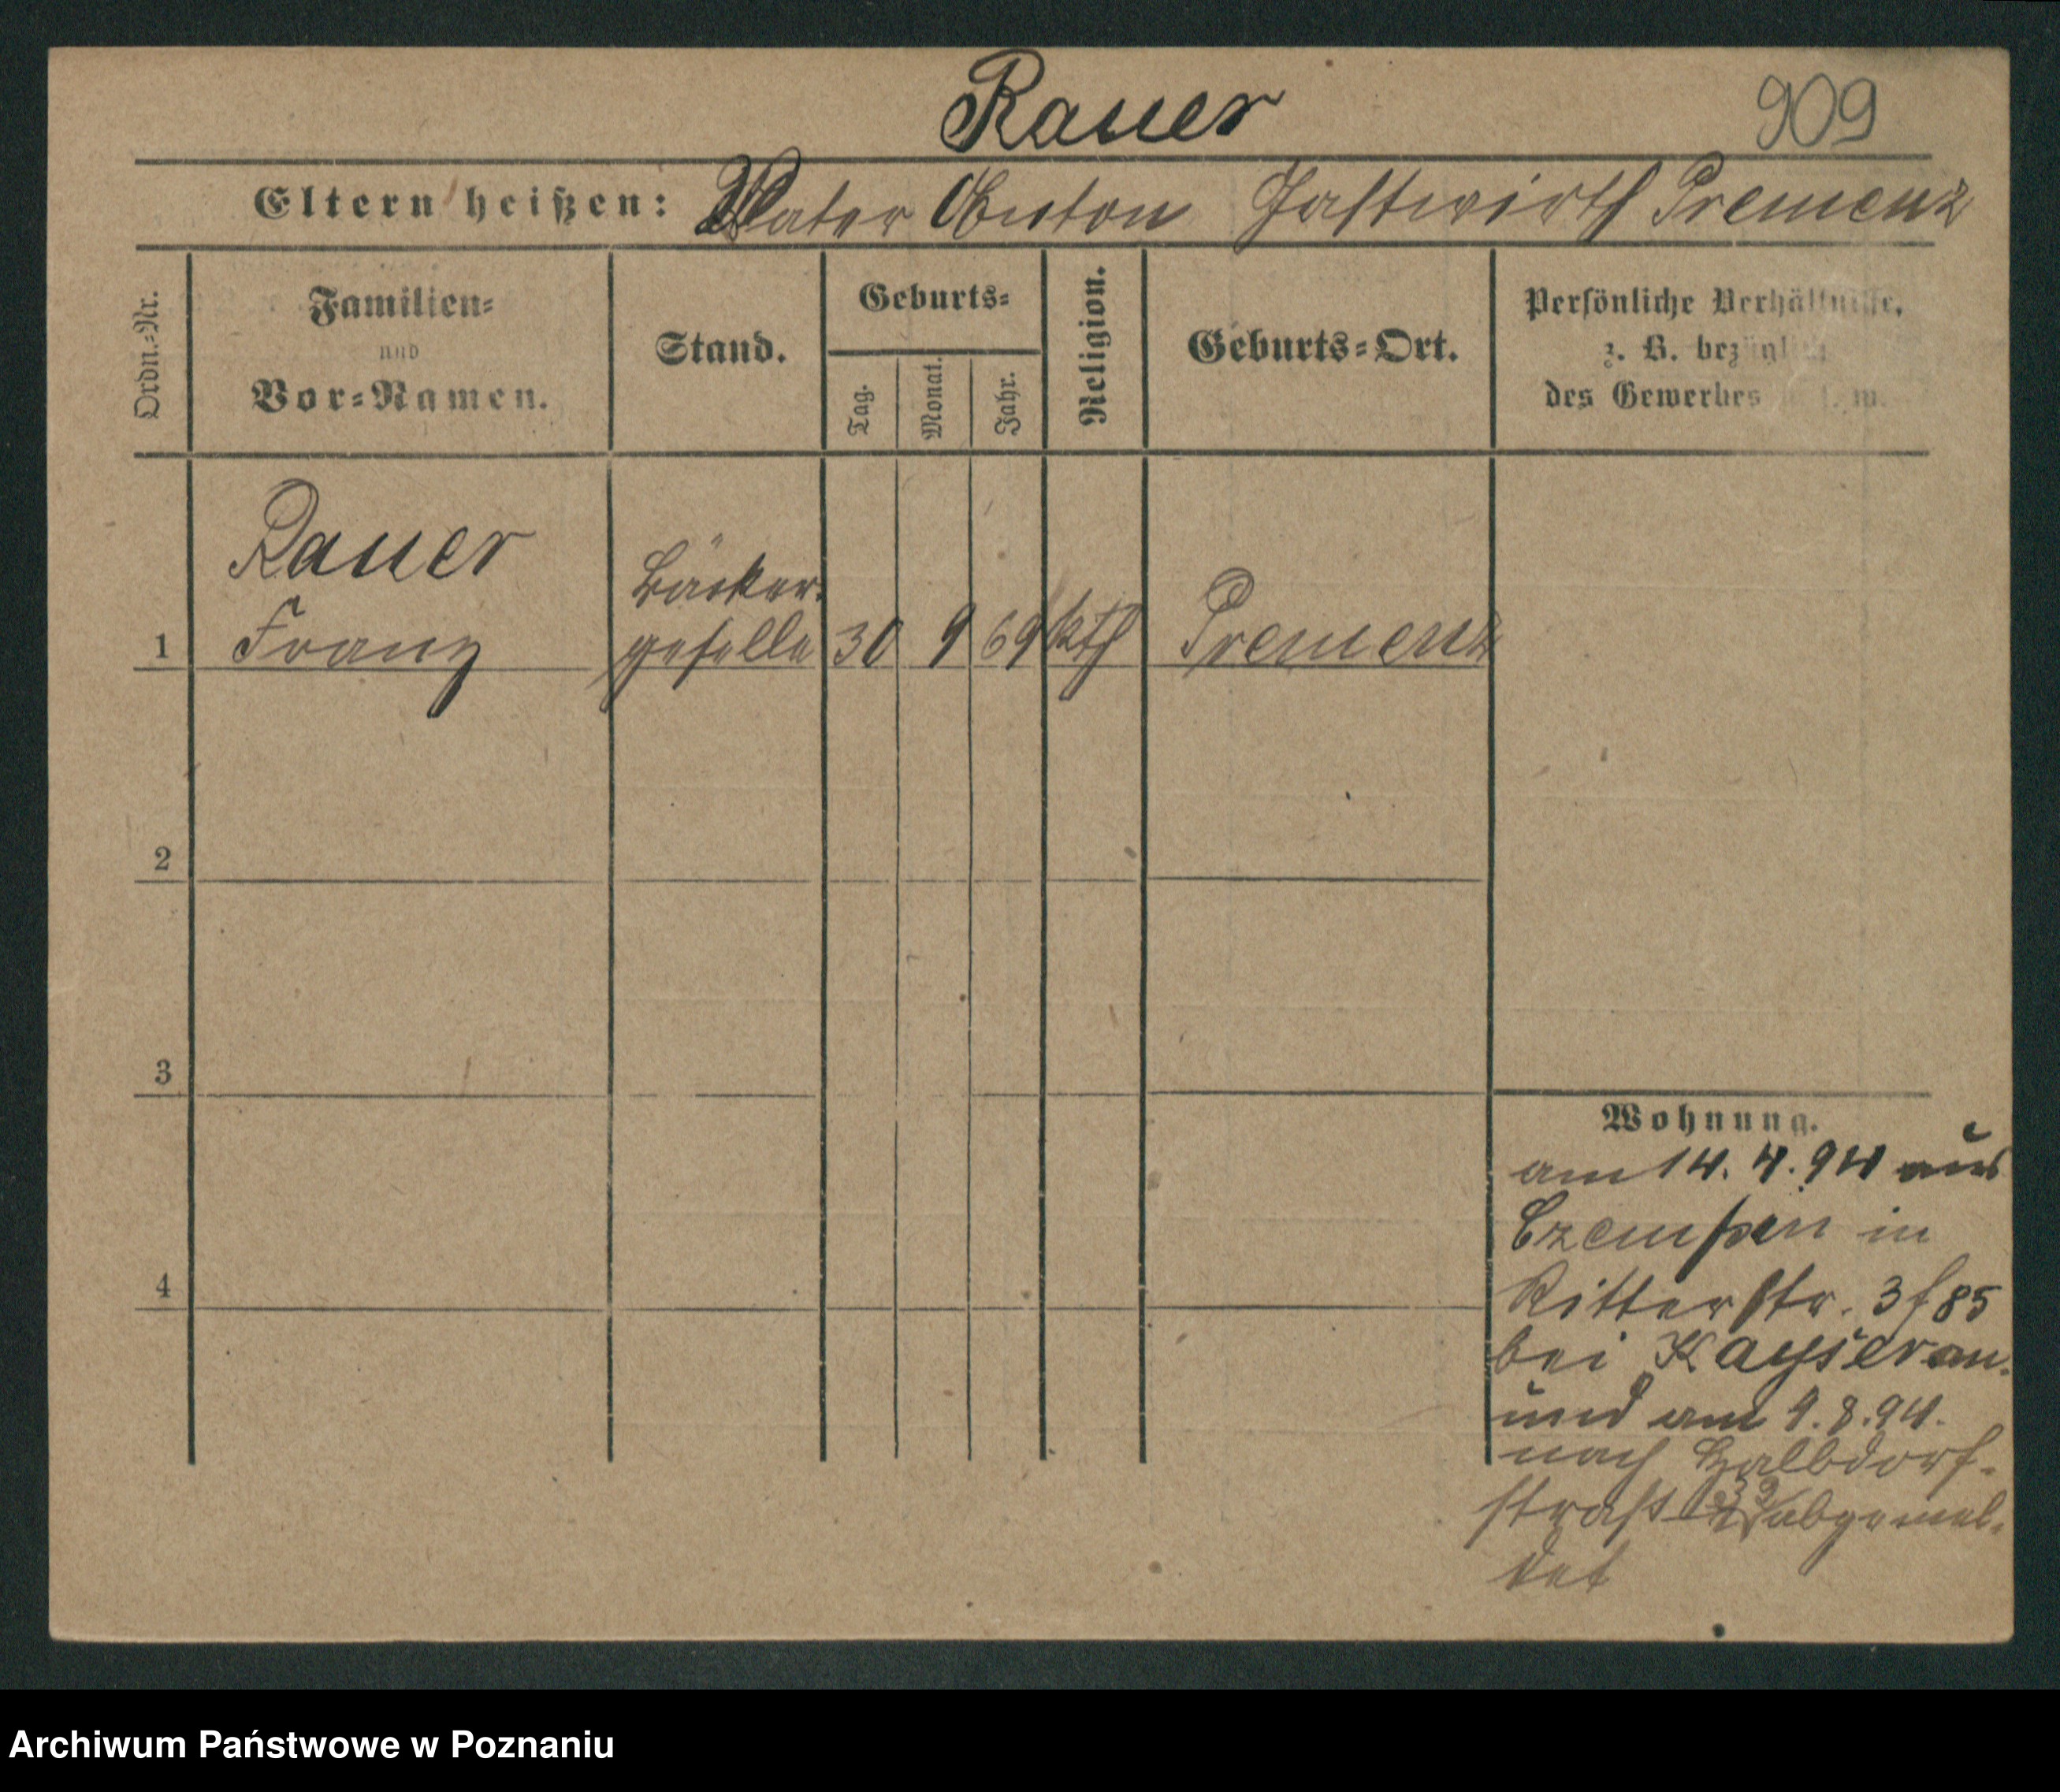 Rauer
909
Eltern heißen: Vater Anton Gastwirth Premenz
Ordn.-Nr.
Familien-
und
Vor-Namen.
Stand.
Geburts-
Tag.
Monat.
Jahr.
Religion.
Geburts-Ort.
Persönliche Verhältnisse,
z. B. bezüglich
des Gewerbes u. s. w.
Rauer
Bäcker-
1 Franz geselle 30 9 69 kth Premenz
2
3
4
Wohnung.
am 14. 4. 94 aus
Czempin in
Ritterstr. 38 f 85
bei Kayser an.
und am 9. 8. 94.
nach Halbdorf-
straße abgemel-
det
Archiwum Państwowe w Poznaniu